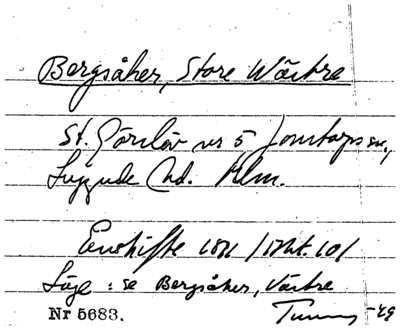 Bergsåker, Store Wästre
St. Görslöv nr 5 Jonstorps sn,
Luggude hd. Mlm.
Enskifte 1811 /Akt. 10/
Läge: se Bergsåker, Västre
Nr 5683. -49